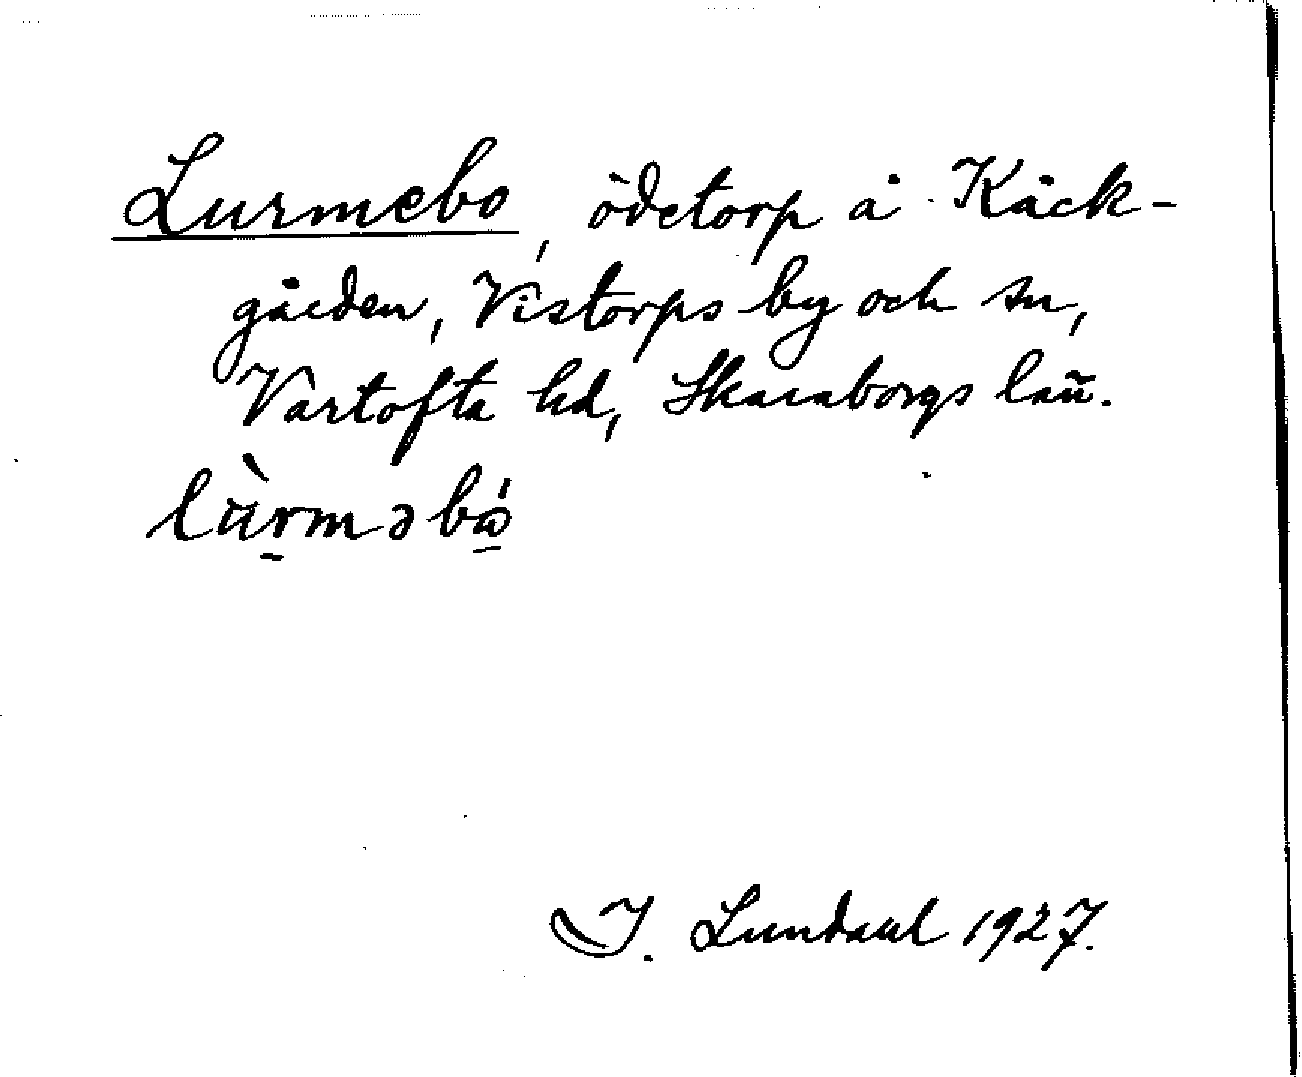 Lurmebo, ödetorp å Käck-
gården, Vistorps by och sn,
Vartofta hd, Skaraborgs län.
I. Lundahl 1927.